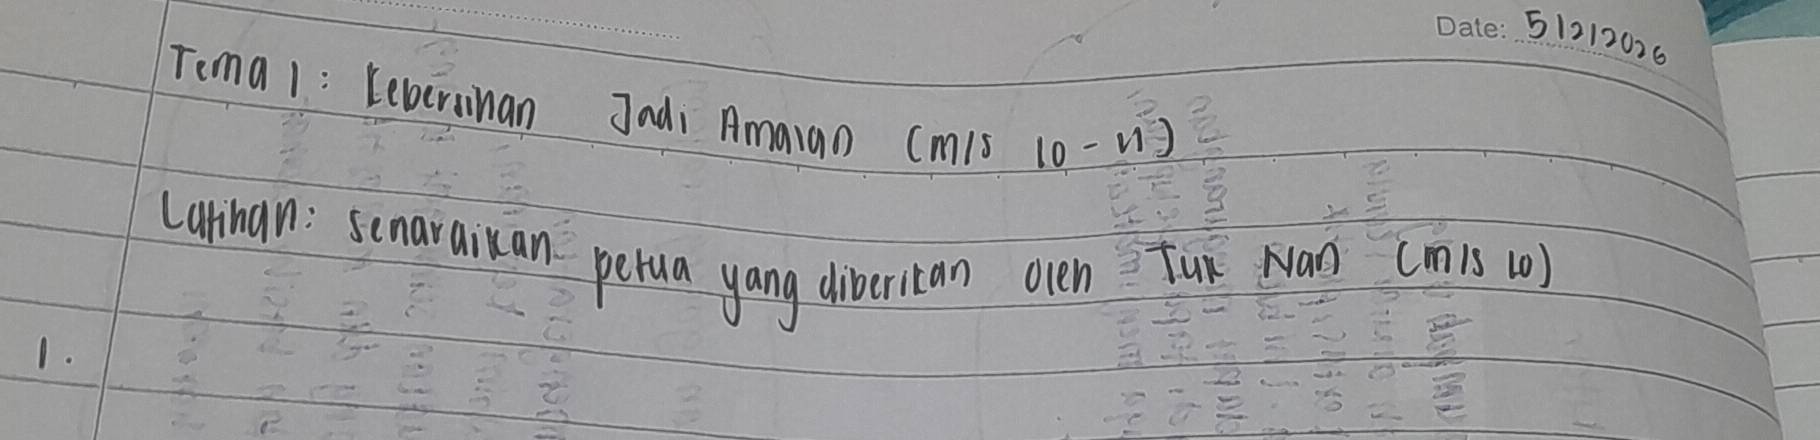 Date: 5/2/2026
Tema 1: Kebersihan Jadi Amalan (m/s 10-11)
Latihan: senaraikan petua yang diberikan oleh Tuk Nan (m/s 10)
1.